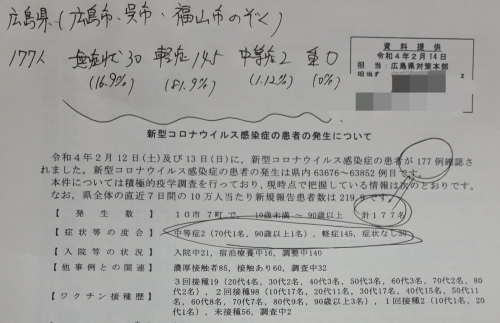 広島県(広島市、呉市・福山市のぞく)
177人 無症状30 軽症145 中等症2 重0
(16.9%) (81.9%) (1.12%) (0%)
資料提供
令和4年2月14日
担当:広島県対策本部
担当者
新型コロナウイルス感染症の患者の発生について
令和4年2月12日(土)及び13日(日)に、新型コロナウイルス感染症の患者が177例確認さ
れました。新型コロナウイルス感染症の患者の発生は県内63676~63852例目です。
本件については積極的疫学調査を行っており、現時点で把握している情報は次のとおりです。
なお、県全体の直近7日間の10万人当たり新規報告患者数は219.9です。
【発生数】 10市7町で、10歳未満~90歳以上 計177名
【症状等の度合】 中等症2(70代1名、90歳以上1名)、軽症145、症状なし30
【入院等の状況】 入院中21、宿泊療養中16、調整中140
【他事例との関連】 濃厚接触者85、接触あり60、調査中32
【ワクチン接種歴】 3回接種19(20代4名、30代2名、40代3名、50代3名、60代3名、70代2名、80
代2名)、2回接種98(10代17名、20代11名、30代17名、40代15名、50代11
名、60代8名、70代7名、80代9名、90歳以上3名)、1回接種2(10代1名、20
代1名)、未接種56、調査中2